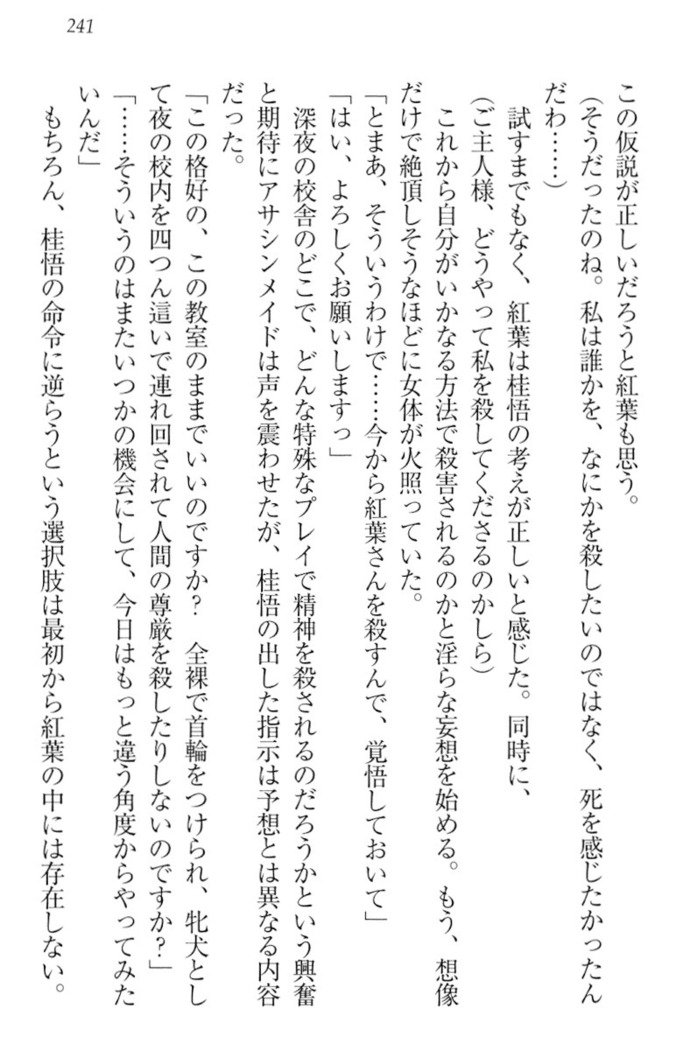 241
この仮説が正しいだろうと紅葉も思う。
(そうだったのね。私は誰かを、なにかを殺したいのではなく、死を感じたかったん
だわ……)
試すまでもなく、紅葉は桂悟の考えが正しいと感じた。同時に、
(ご主人様、どうやって私を殺してくださるのかしら)
これから自分がいかなる方法で殺害されるのかと淫らな妄想を始める。もう、想像
だけで絶頂しそうなほどに女体が火照っていた。
「とまあ、そういうわけで……今から紅葉さんを殺すんで、覚悟しておいて」
「はい、よろしくお願いしますっ」
深夜の校舎のどこで、どんな特殊なプレイで精神を殺されるのだろうかという興奮
と期待にアサシンメイドは声を震わせたが、桂悟の出した指示は予想とは異なる内容
だった。
「この格好の、この教室のままでいいのですか？　全裸で首輪をつけられ、牝犬とし
て夜の校内を四つん這いで連れ回されて人間の尊厳を殺したりしないのですか？」
「……そういうのはまたいつかの機会にして、今日はもっと違う角度からやってみた
いんだ」
もちろん、桂悟の命令に逆らうという選択肢は最初から紅葉の中には存在しない。